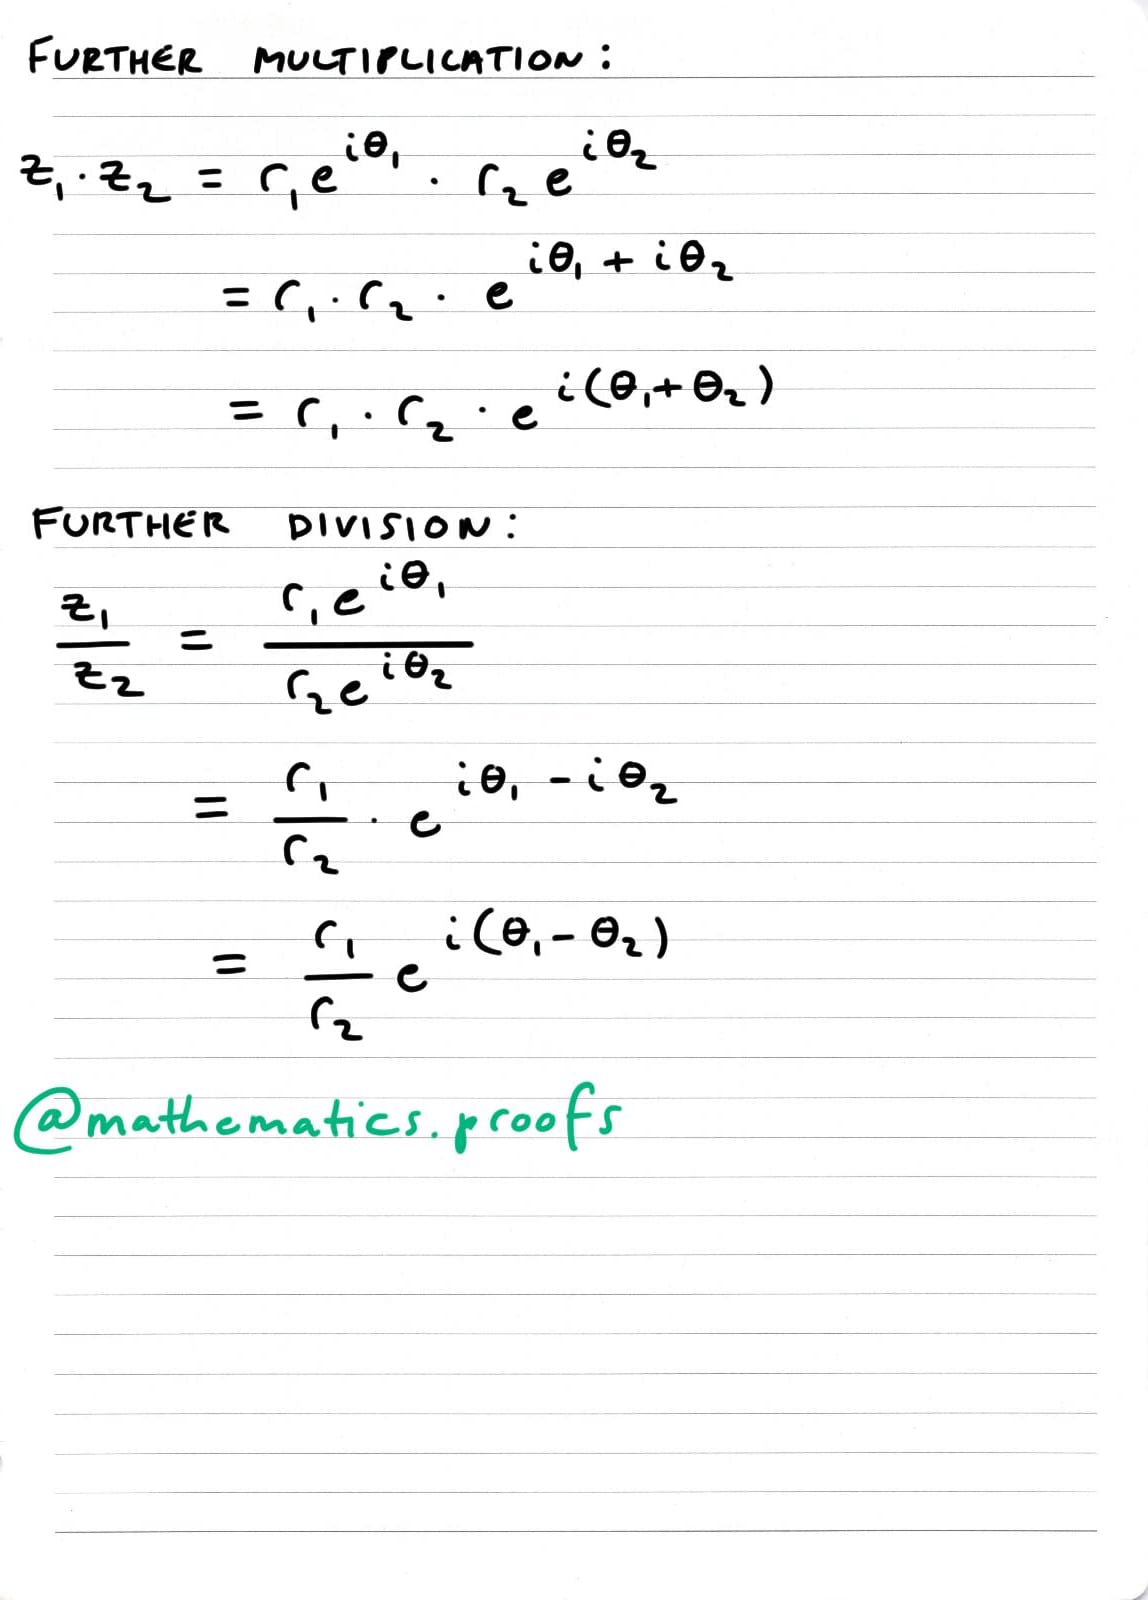 FURTHER MULTIPLICATION:
z₁ · z₂ = r₁e^{iθ₁} · r₂e^{iθ₂}
= r₁ · r₂ · e^{iθ₁ + iθ₂}
= r₁ · r₂ · e^{i(θ₁+θ₂)}
FURTHER DIVISION:
z₁/z₂ = r₁e^{iθ₁}/r₂e^{iθ₂}
= r₁/r₂ · e^{iθ₁ - iθ₂}
= r₁/r₂ e^{i(θ₁-θ₂)}
@mathematics.proofs